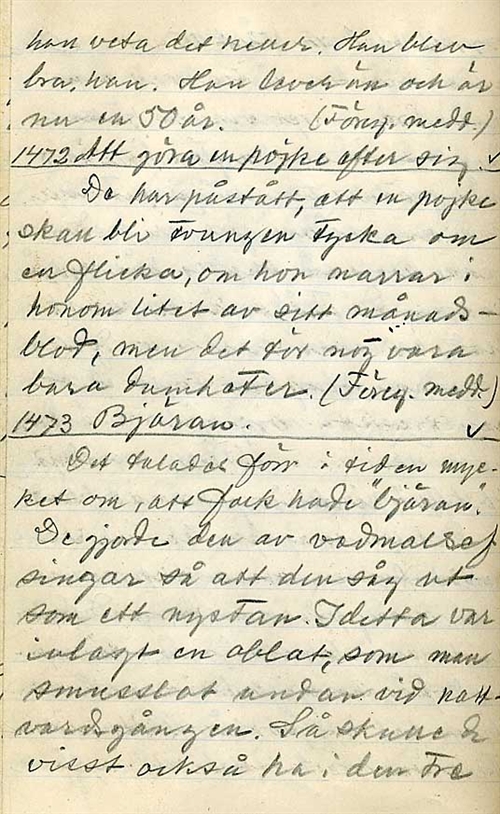 han veta det heller. Han blev
bra, han. Han lever än och är
nu en 50 år. (Föreg. medd.)
1472 Att göra en pojke efter sig. ✓
De har påstått, att en pojke
skall bli tvungen tycka om
en flicka, om hon narrar i
honom litet av sitt månads-
blod, men det tör nog vara
bara dumheter. (Föreg. medd.)
1473 Bjäran. ✓
Det talades förr i tiden myc-
ket om, att folk hade "bjäran".
De gjorde den av vadmals
singar så att den såg ut
som ett nystan. I detta var
inlagt en oblat, som man
smusslat undan vid natt-
vardsgången. Så skulle de
visst också ha i den tre